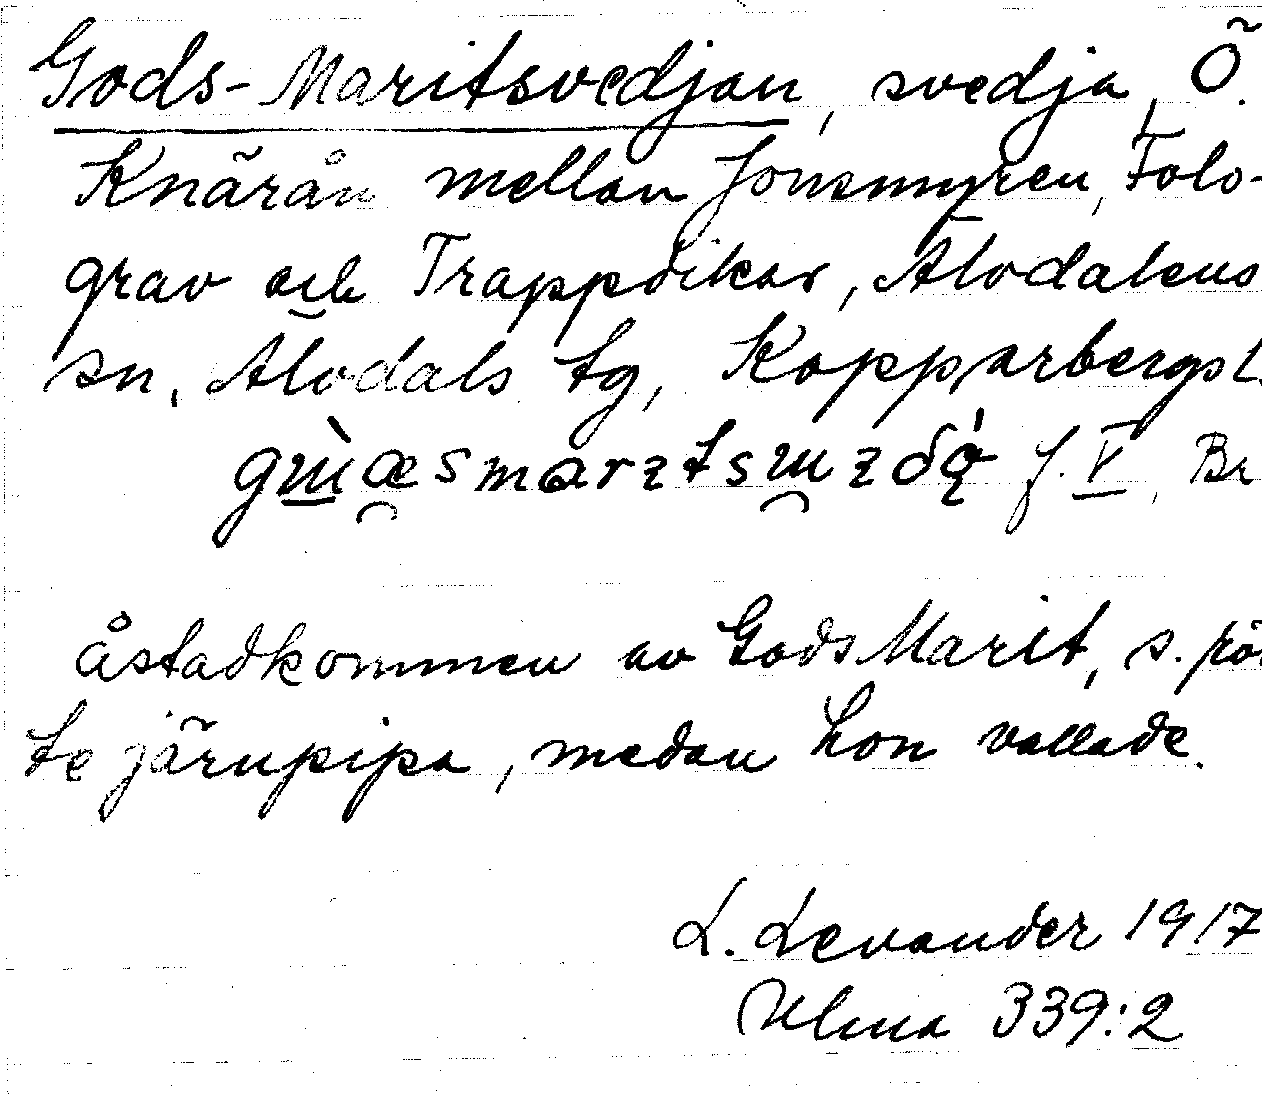 Gods-Maritsvedjan, svedja, Ö.
Knärån mellan Jonsmyren, Folo-
grav och Trappdikar, Älvdalens
sn, Älvdals tg, Kopparbergs l.
f. V, Br
åstadkommen av Gods Marit, s.
te järnpipa, medan hon vallade.
L. Levander 1917
Ulma 339:2